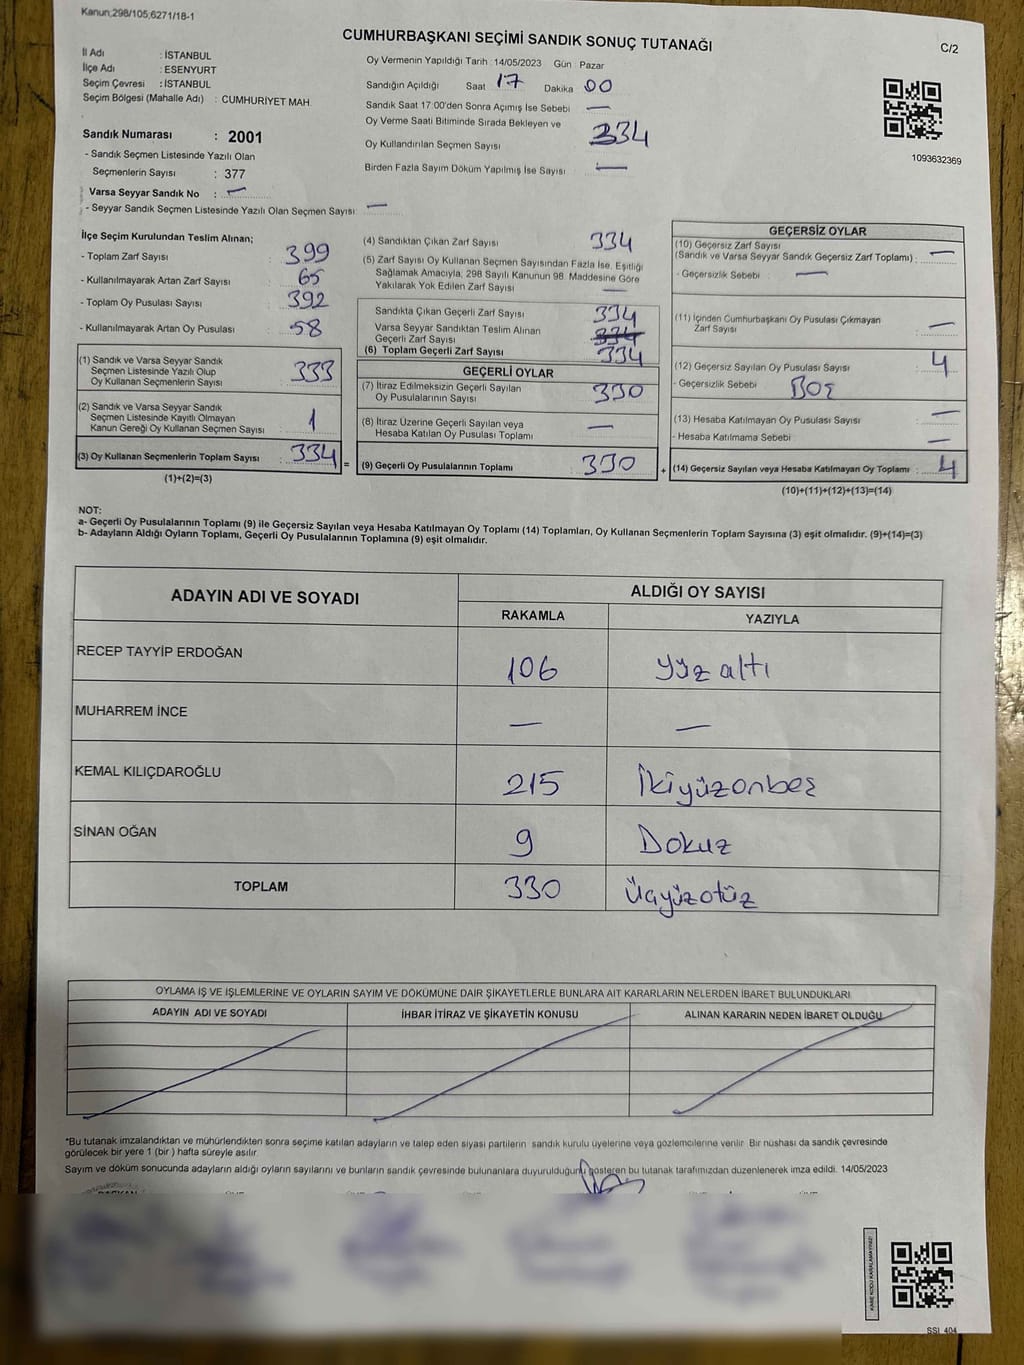 Kanun;298/105;6271/18-1
CUMHURBAŞKANI SEÇİMİ SANDIK SONUÇ TUTANAĞI
C/2
İl Adı : İSTANBUL
İlçe Adı : ESENYURT
Seçim Çevresi : İSTANBUL
Seçim Bölgesi (Mahalle Adı) : CUMHURİYET MAH.
Sandık Numarası : 2001
- Sandık Seçmen Listesinde Yazılı Olan
Seçmenlerin Sayısı : 377
Varsa Seyyar Sandık No : —
- Seyyar Sandık Seçmen Listesinde Yazılı Olan Seçmen Sayısı : —
Oy Vermenin Yapıldığı Tarih : 14/05/2023 Gün : Pazar
Sandığın Açıldığı Saat 17 Dakika 00
Sandık Saat 17:00'den Sonra Açımış İse Sebebi : —
Oy Verme Saati Bitiminde Sırada Bekleyen ve
Oy Kullandırılan Seçmen Sayısı : 334
Birden Fazla Sayım Döküm Yapılmış İse Sayısı : —
1093632369
İlçe Seçim Kurulundan Teslim Alınan;
- Toplam Zarf Sayısı : 399
- Kullanılmayarak Artan Zarf Sayısı : 65
- Toplam Oy Pusulası Sayısı : 392
- Kullanılmayarak Artan Oy Pusulası : 58
(1) Sandık ve Varsa Seyyar Sandık
Seçmen Listesinde Yazılı Olup
Oy Kullanan Seçmenlerin Sayısı : 333
(2) Sandık ve Varsa Seyyar Sandık
Seçmen Listesinde Kayıtlı Olmayan
Kanun Gereği Oy Kullanan Seçmen Sayısı : 1
(3) Oy Kullanan Seçmenlerin Toplam Sayısı : 334
(1)+(2)=(3)
=
(4) Sandıktan Çıkan Zarf Sayısı : 334
(5) Zarf Sayısı Oy Kullanan Seçmen Sayısından Fazla İse, Eşitliği
Sağlamak Amacıyla, 298 Sayılı Kanunun 98. Maddesine Göre
Yakılarak Yok Edilen Zarf Sayısı : —
Sandıkta Çıkan Geçerli Zarf Sayısı : 334
Varsa Seyyar Sandıktan Teslim Alınan
Geçerli Zarf Sayısı : 334
(6) Toplam Geçerli Zarf Sayısı : 334
GEÇERLİ OYLAR
(7) İtiraz Edilmeksizin Geçerli Sayılan
Oy Pusulalarının Sayısı : 330
(8) İtiraz Üzerine Geçerli Sayılan veya
Hesaba Katılan Oy Pusulası Toplamı : —
(9) Geçerli Oy Pusulalarının Toplamı : 330
+
GEÇERSİZ OYLAR
(10) Geçersiz Zarf Sayısı
(Sandık ve Varsa Seyyar Sandık Geçersiz Zarf Toplamı) : —
- Geçersizlik Sebebi : —
(11) İçinden Cumhurbaşkanı Oy Pusulası Çıkmayan
Zarf Sayısı : —
(12) Geçersiz Sayılan Oy Pusulası Sayısı : 4
- Geçersizlik Sebebi : BOŞ
(13) Hesaba Katılmayan Oy Pusulası Sayısı : —
- Hesaba Katılmama Sebebi : —
(14) Geçersiz Sayılan veya Hesaba Katılmayan Oy Toplamı : 4
(10)+(11)+(12)+(13)=(14)
NOT:
a- Geçerli Oy Pusulalarının Toplamı (9) ile Geçersiz Sayılan veya Hesaba Katılmayan Oy Toplamı (14) Toplamları, Oy Kullanan Seçmenlerin Toplam Sayısına (3) eşit olmalıdır. (9)+(14)=(3)
b- Adayların Aldığı Oyların Toplamı, Geçerli Oy Pusulalarının Toplamına (9) eşit olmalıdır.
ADAYIN ADI VE SOYADI
ALDIĞI OY SAYISI
RAKAMLA YAZIYLA
RECEP TAYYİP ERDOĞAN 106 Yüz altı
MUHARREM İNCE — —
KEMAL KILIÇDAROĞLU 215 İkiyüzonbeş
SİNAN OĞAN 9 Dokuz
TOPLAM 330 Üçyüzotuz
OYLAMA İŞ VE İŞLEMLERİNE VE OYLARIN SAYIM VE DÖKÜMÜNE DAİR ŞİKAYETLERLE BUNLARA AİT KARARLARIN NELERDEN İBARET BULUNDUKLARI
ADAYIN ADI VE SOYADI İHBAR İTİRAZ VE ŞİKAYETİN KONUSU ALINAN KARARIN NEDEN İBARET OLDUĞU
*Bu tutanak imzalandıktan ve mühürlendikten sonra seçime katılan adayların ve talep eden siyasi partilerin sandık kurulu üyelerine veya gözlemcilerine verilir. Bir nüshası da sandık çevresinde
görülecek bir yere 1 (bir) hafta süreyle asılır.
Sayım ve döküm sonucunda adayların aldığı oyların sayılarını ve bunların sandık çevresinde bulunanlara duyurulduğunu gösteren bu tutanak tarafımızdan düzenlenerek imza edildi. 14/05/2023
BAŞKAN
KARE KODU KARALAMAYINIZ!
SSI_404